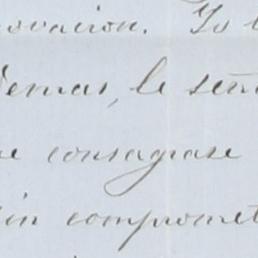 ovacion. Yo
demas, le sen
e consagrase
in compromet